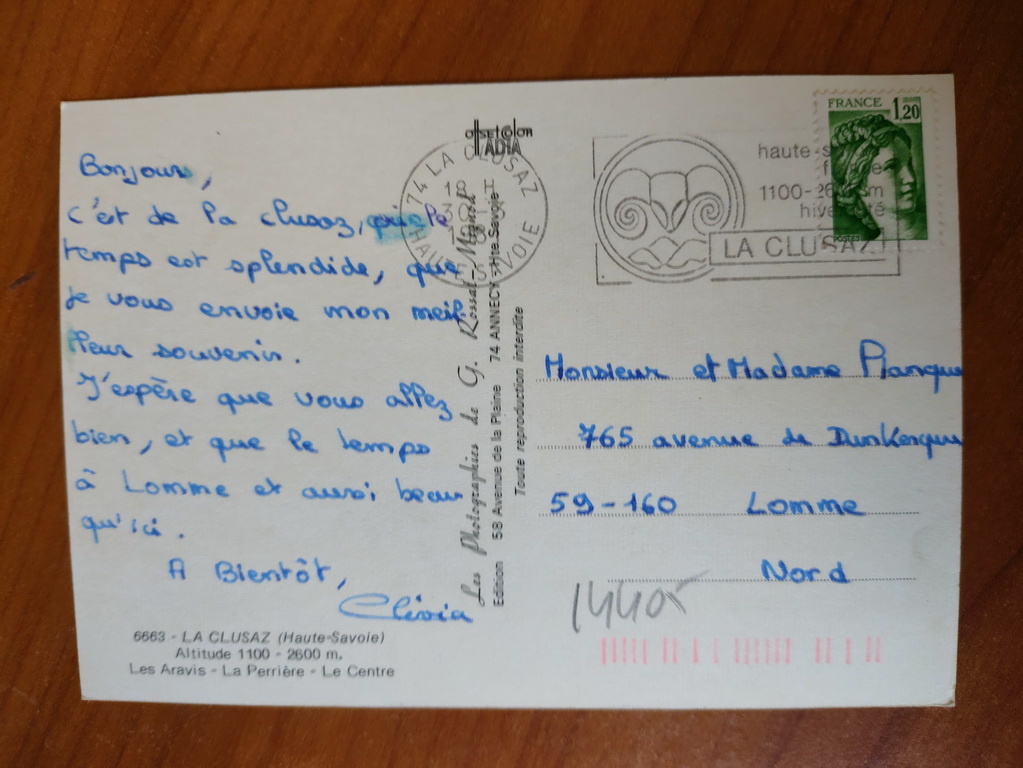 Bonjour,
c'est de la clusaz, où le
temps est splendide, que
je vous envoie mon meil-
leur souvenir.
J'espère que vous allez
bien, et que le temps
à Lomme et aussi beau
qu'ici.
A Bientôt,
Clivia
6663 - LA CLUSAZ (Haute-Savoie)
Altitude 1100 - 2600 m.
Les Aravis - La Perrière - Le Centre
ADIA
Les Photographies de G. Rossat-Mignod
Edition 58 Avenue de la Plaine 74 ANNECY - Hte-Savoie
Toute reproduction interdite
74 LA CLUSAZ
HAUTE SAVOIE
FRANCE 1,20
POSTES
haute
1100-26 m
LA CLUSAZ
Monsieur et Madame Planque
765 avenue de Dunkerque
59-160 Lomme
Nord